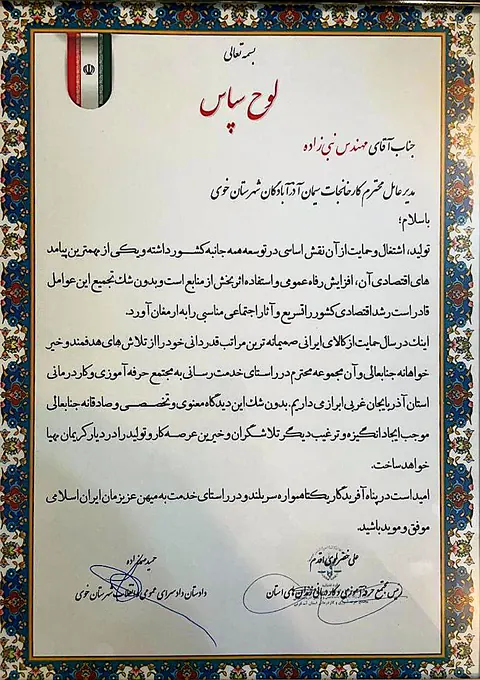 بسمه تعالی
لوح سپاس
جناب آقای مهندس نبی زاده
مدیر عامل محترم کارخانجات سیمان آذرآبادگان شهرستان خوی
با سلام؛
تولید، اشتغال و حمایت از آن نقش اساسی در توسعه همه جانبه کشور داشته و یکی از مهمترین پیامد
های اقتصادی آن، افزایش رفاه عمومی و استفاده اثربخش از منابع است و بدون شک تجمیع این عوامل
قادر است رشد اقتصادی کشور را تسریع و آثار اجتماعی مناسبی را به ارمغان آورد.
اینک در سال حمایت از کالای ایرانی صمیمانه ترین مراتب قدردانی خود را از تلاش های هدفمند و خیر
خواهانه جنابعالی و آن مجموعه محترم در راستای خدمت رسانی به مجتمع حرفه آموزی و کاردرمانی
استان آذربایجان غربی ابراز می داریم. بدون شک این دیدگاه معنوی و تخصصی و صادقانه جنابعالی
موجب ایجاد انگیزه و ترغیب دیگر تلاشگران و خیرین عرصه کار و تولید را در دیار کریمان مهیا
خواهد ساخت.
امید است در پناه آفریدگار یکتا همواره سربلند و در راستای خدمت به میهن عزیزمان ایران اسلامی
موفق و موید باشید.
علی خضرلوی اقدم
رئیس مجتمع حرفه آموزی و کاردرمانی های استان
دادستان دادسرای عمومی و انقلاب شهرستان خوی